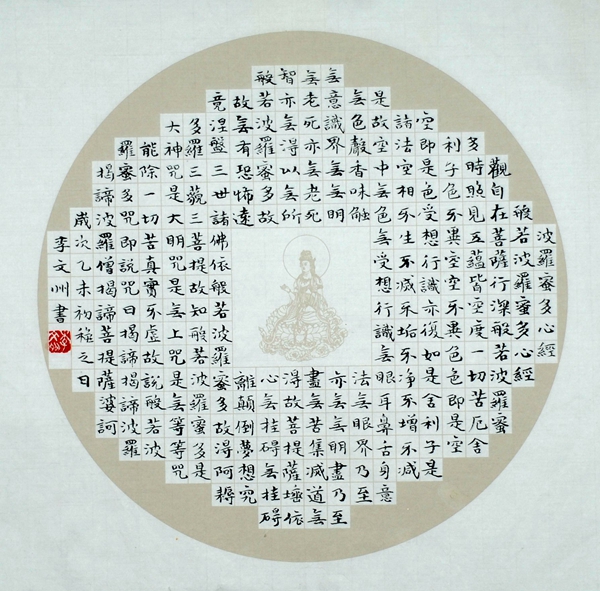 波羅蜜多心經
般若波羅蜜多心經
觀自在菩薩行深般若波羅蜜
多時照見五蘊皆空度一切苦厄舍
利子色不異空空不異色色即是空
空即是色受想行識亦復如是舍利子是
諸法空相不生不滅不垢不淨不增不減
是故空中無色無受想行識無眼耳鼻舌身意
無色聲香味觸法無眼界乃至
無意識界無無明亦無無明盡乃至
無老死亦無老死盡無苦集滅道無
智亦無得以無所得故菩提薩埵依
般若波羅蜜多故心無挂碍無挂碍
故無有恐怖遠離顛倒夢想究
竟涅盤三世諸佛依般若波羅蜜多故得阿耨
多羅三藐三菩提故知般若波羅蜜多是
大神咒是大明咒是無上咒是無等等咒
能除一切苦真實不虛故說般若波
羅蜜多咒即說咒曰揭諦揭諦波羅
揭諦波羅僧揭諦菩提薩婆訶
歲次乙未初穐之日
李文州書